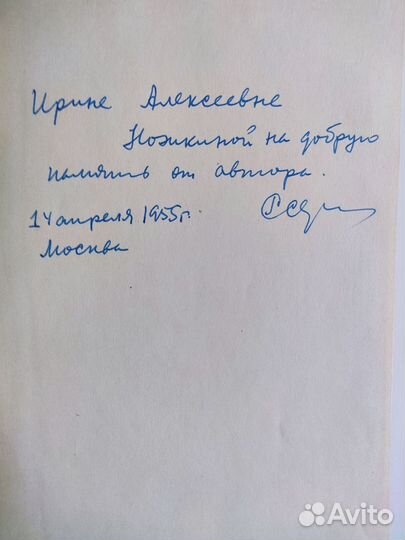 Ирине Алексеевне
Ножкиной на добрую
память от автора.
14 апреля 1955г.
Москва
Avito